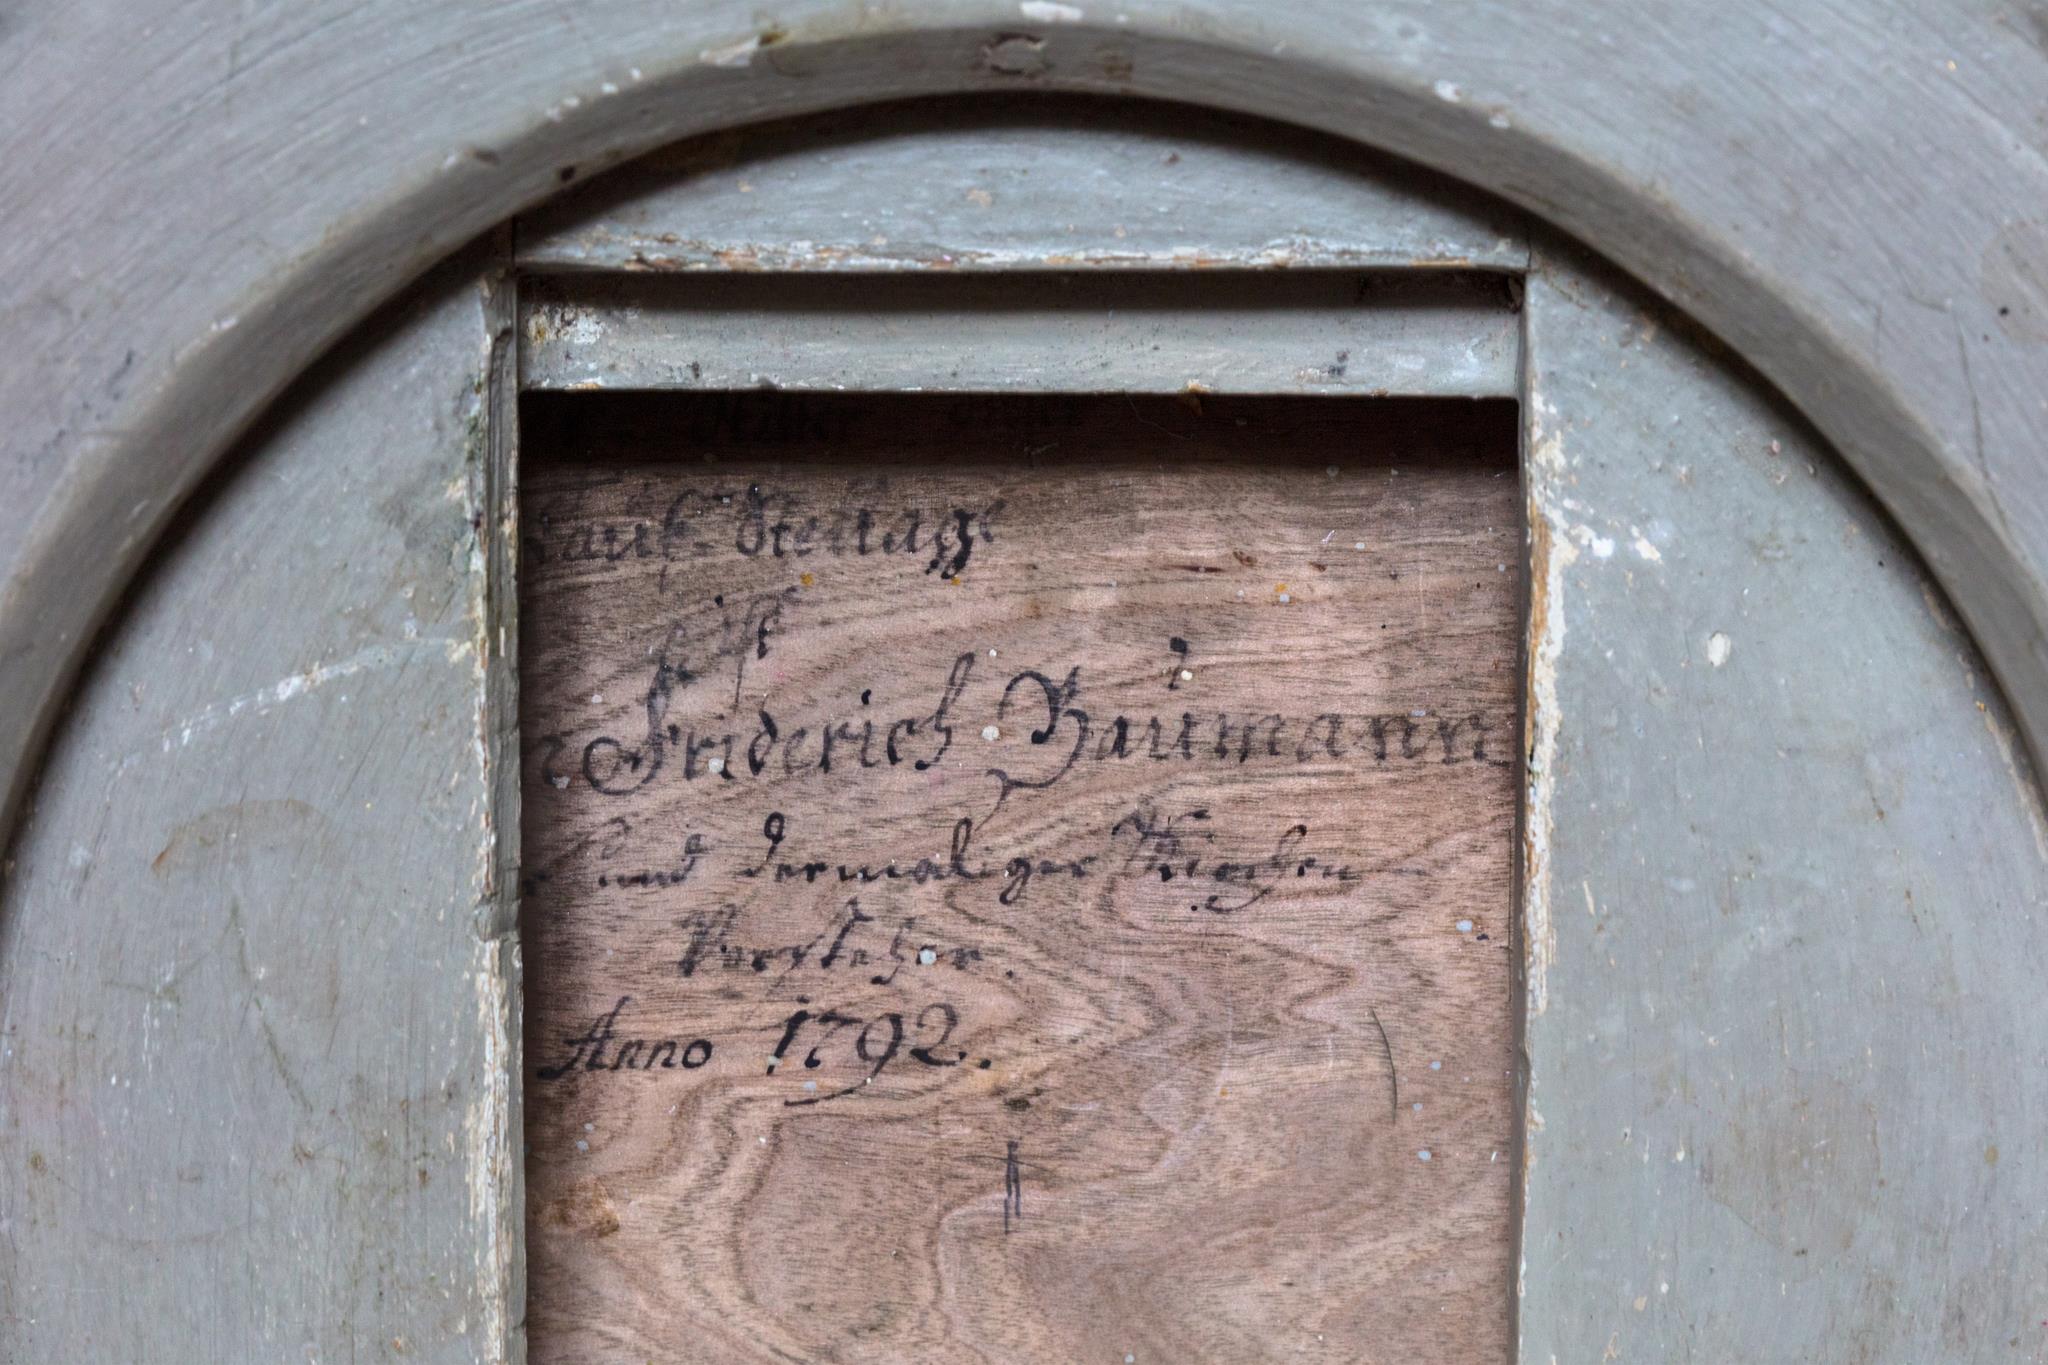 Tauf-Stellage
Friderich Baumann
und dermaliger Kirchen
Vorsteher.
Anno 1792.